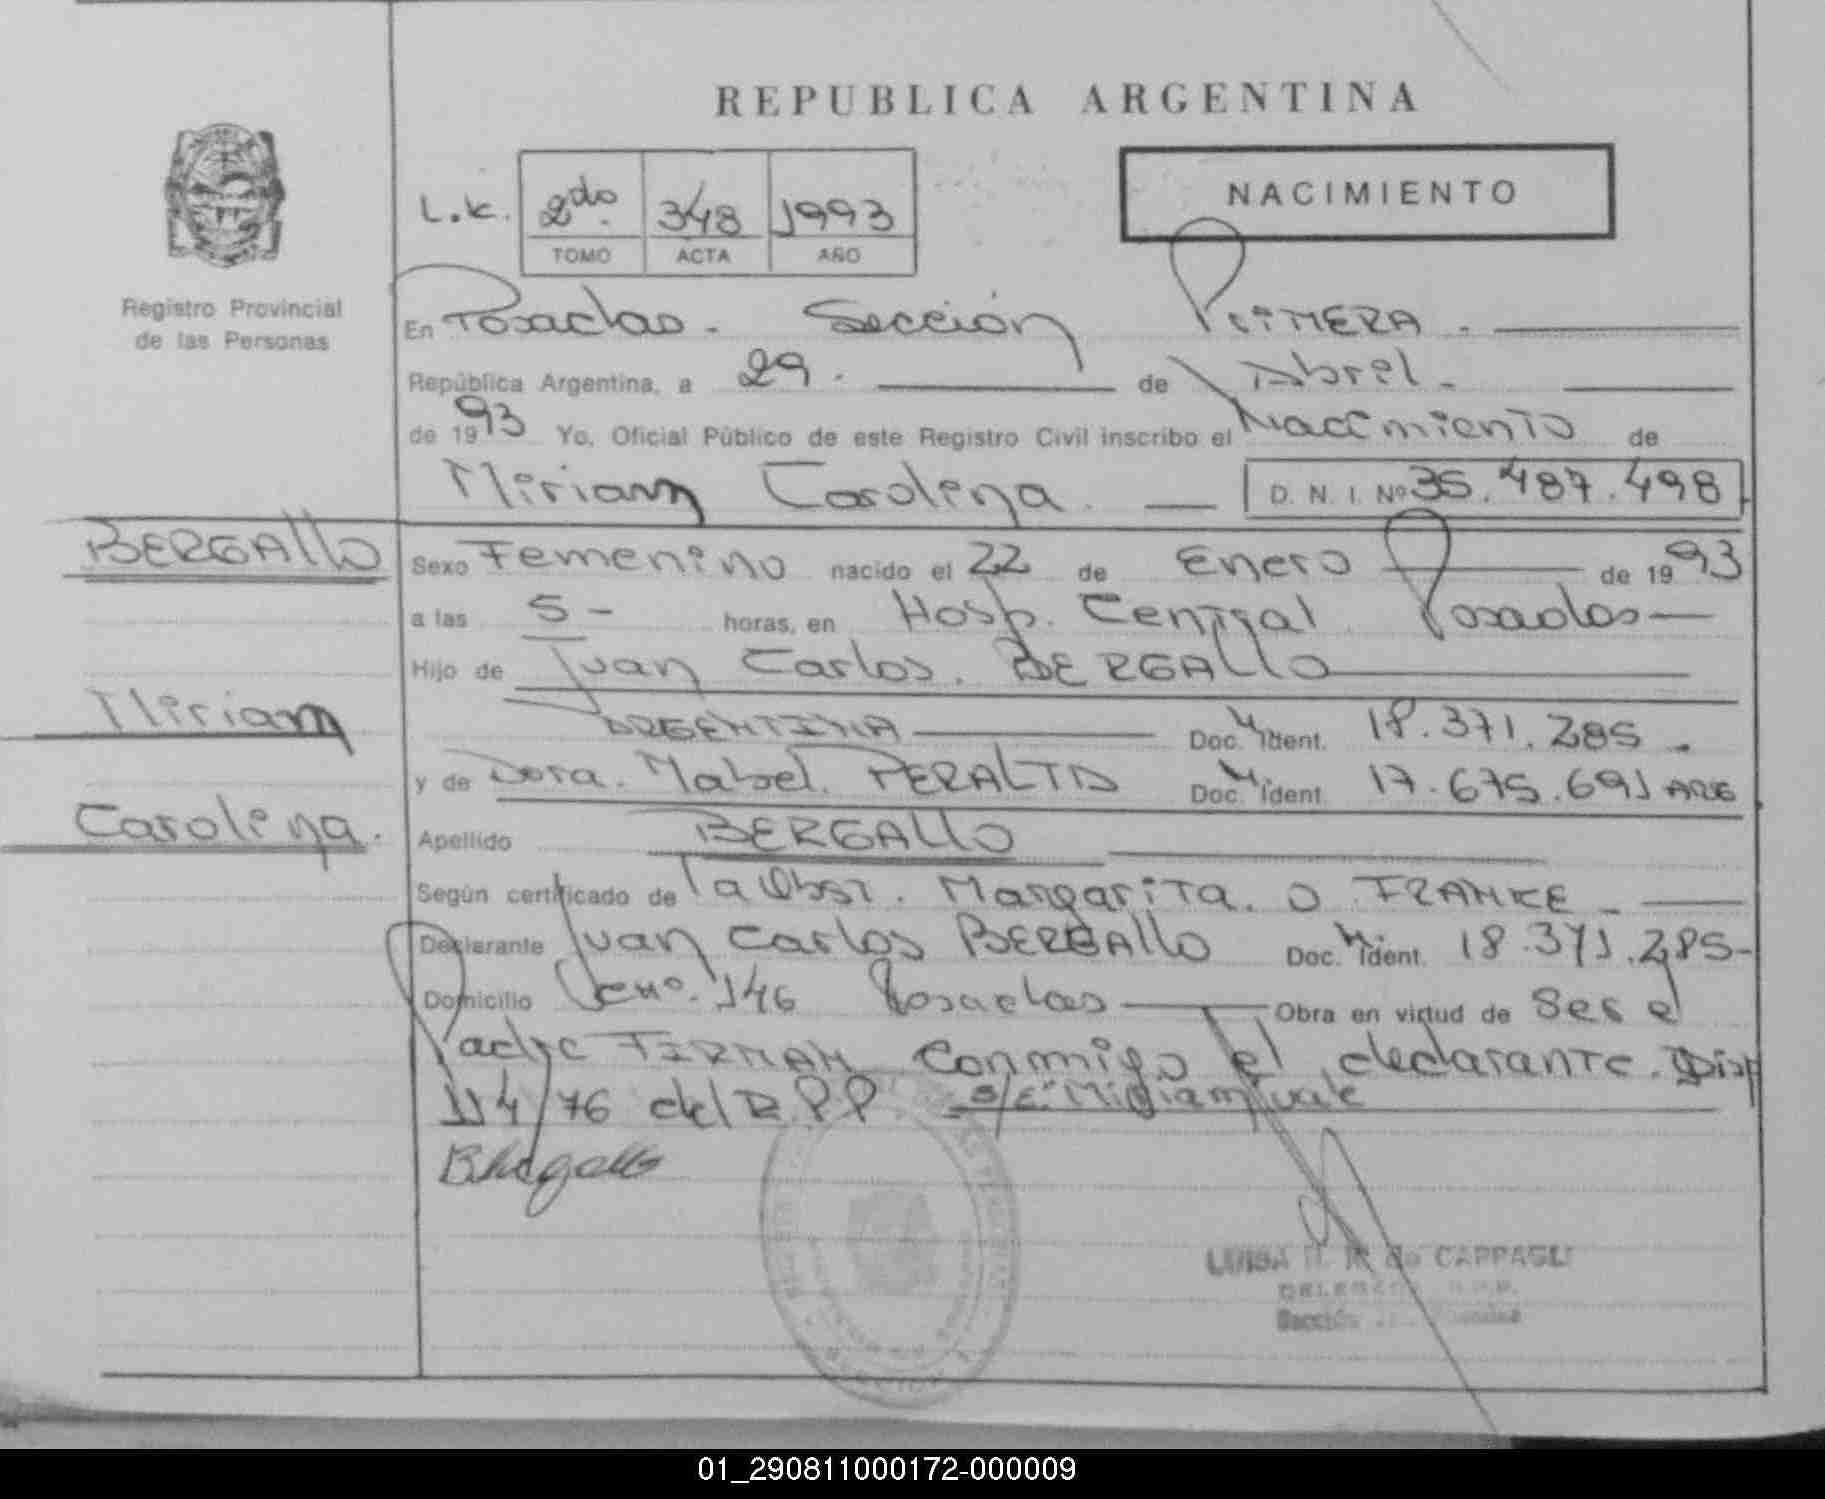 REPUBLICA ARGENTINA
NACIMIENTO
L.K. 2do. 348 1993
TOMO ACTA AÑO
Registro Provincial
de las Personas
En Posadas. Sección PriMERA.
República Argentina, a 29. de Abril.
de 1993 Yo, Oficial Público de este Registro Civil inscribo el Nacimiento de
Miriam Carolina. D. N. I. Nº 35.487.498
BERGAllo
Miriam
Carolina.
Sexo Femenino nacido el 22 de Enero de 1993
a las 5 - horas, en Hosp. Central Posadas
Hijo de Juan Carlos. BERGAllo
ARGENTINA Doc. Ident. 18.371.285.
y de Dora. Mabel. PERALTA Doc. Ident. 17.675.691 ARG
Apellido BERGAllo
Según certificado de la Obst. Margarita. O FRANKE
Declarante Juan Carlos BERGAllo Doc. Ident. 18.371.285-
Domicilio 146 Posadas Obra en virtud de Ser el
Padre FIRMAN Conmigo el declarante. Disp
114/76 del R.P.P s/e: Miriam vale
LUISA de CAPPAGLI
DELEGADA R.P.P.
Sección
01_290811000172-000009